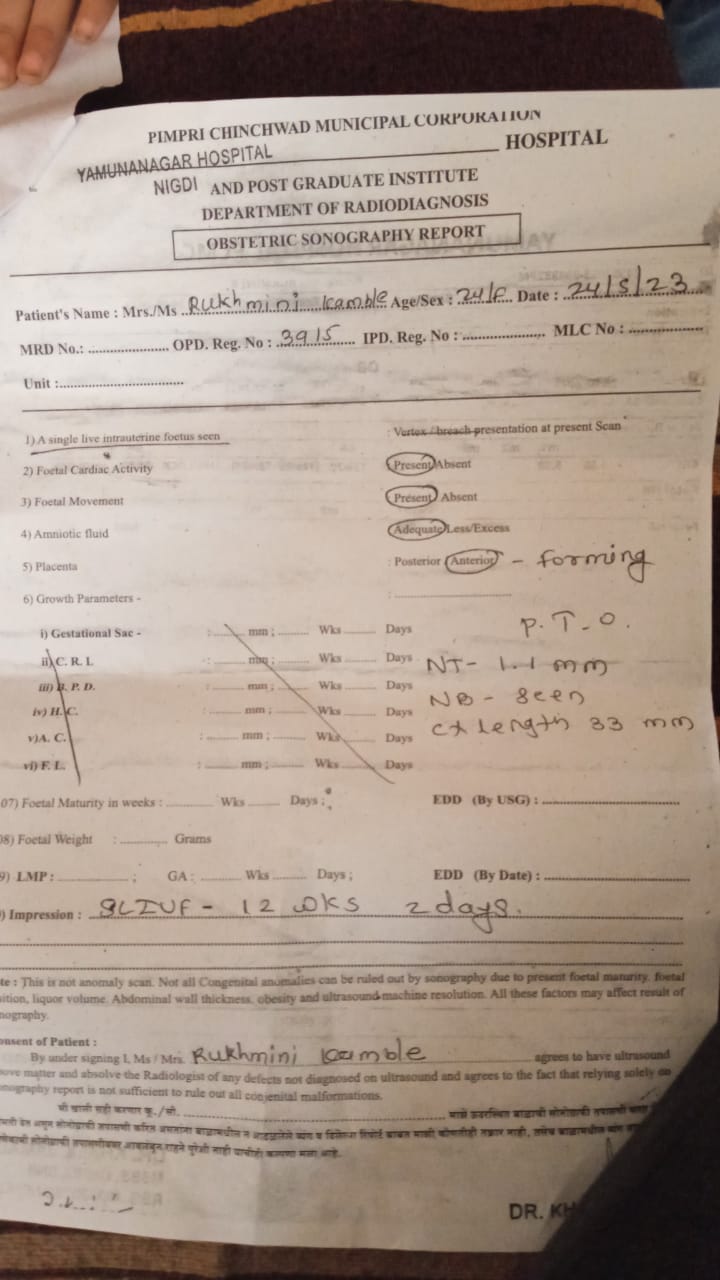 PIMPRI CHINCHWAD MUNICIPAL CORPORATION
YAMUNANAGAR HOSPITAL HOSPITAL
NIGDI AND POST GRADUATE INSTITUTE
DEPARTMENT OF RADIODIAGNOSIS
OBSTETRIC SONOGRAPHY REPORT
Patient's Name : Mrs./Ms Rukhmini Kamble Age/Sex : 24/F Date : 24/5/23
MRD No.: .................... OPD. Reg. No : 3915 IPD. Reg. No : .................... MLC No : ..................
Unit :...............................
1) A single live intrauterine foetus seen : Vertex / breach presentation at present Scan
2) Foetal Cardiac Activity Present/Absent
3) Foetal Movement Present/ Absent
4) Amniotic fluid Adequate/Less/Excess
5) Placenta : Posterior /Anterior - forming
6) Growth Parameters - : ..............................
P.T.O.
i) Gestational Sac - : ........ mm ; ........ Wks ........ Days
ii) C. R. L : ........ mm ; ........ Wks ........ Days NT - 1.1 mm
iii) B. P. D. : ........ mm ; ........ Wks ........ Days NB - seen
iv) H. C. : ........ mm ; ........ Wks ........ Days cx Length 33 mm
v) A. C. : ........ mm ; ........ Wks ........ Days
vi) F. L. : ........ mm ; ........ Wks ........ Days
07) Foetal Maturity in weeks : ............ Wks ........ Days ; EDD (By USG) : ..................................
08) Foetal Weight : ............ Grams
9) LMP : .................... ; GA : ........ Wks ........ Days ; EDD (By Date) : ..................................
) Impression : SLIUF - 12 wks 2 days.
te : This is not anomaly scan. Not all Congenital anomalies can be ruled out by sonography due to present foetal maturity, foetal
sition, liquor volume. Abdominal wall thickness, obesity and ultrasound machine resolution. All these factors may affect result of
nography.
onsent of Patient :
By under signing I, Ms / Mrs. Rukhmini Kamble agrees to have ultrasound
ove matter and absolve the Radiologist of any defects not diagnosed on ultrasound and agrees to the fact that relying solely on
onography report is not sufficient to rule out all conjenital malformations.
मी खाली सही करणार कू./सौ. .................... माझे उदरस्थित बाळाची सोनोग्राफी तपासणी
DR. KH